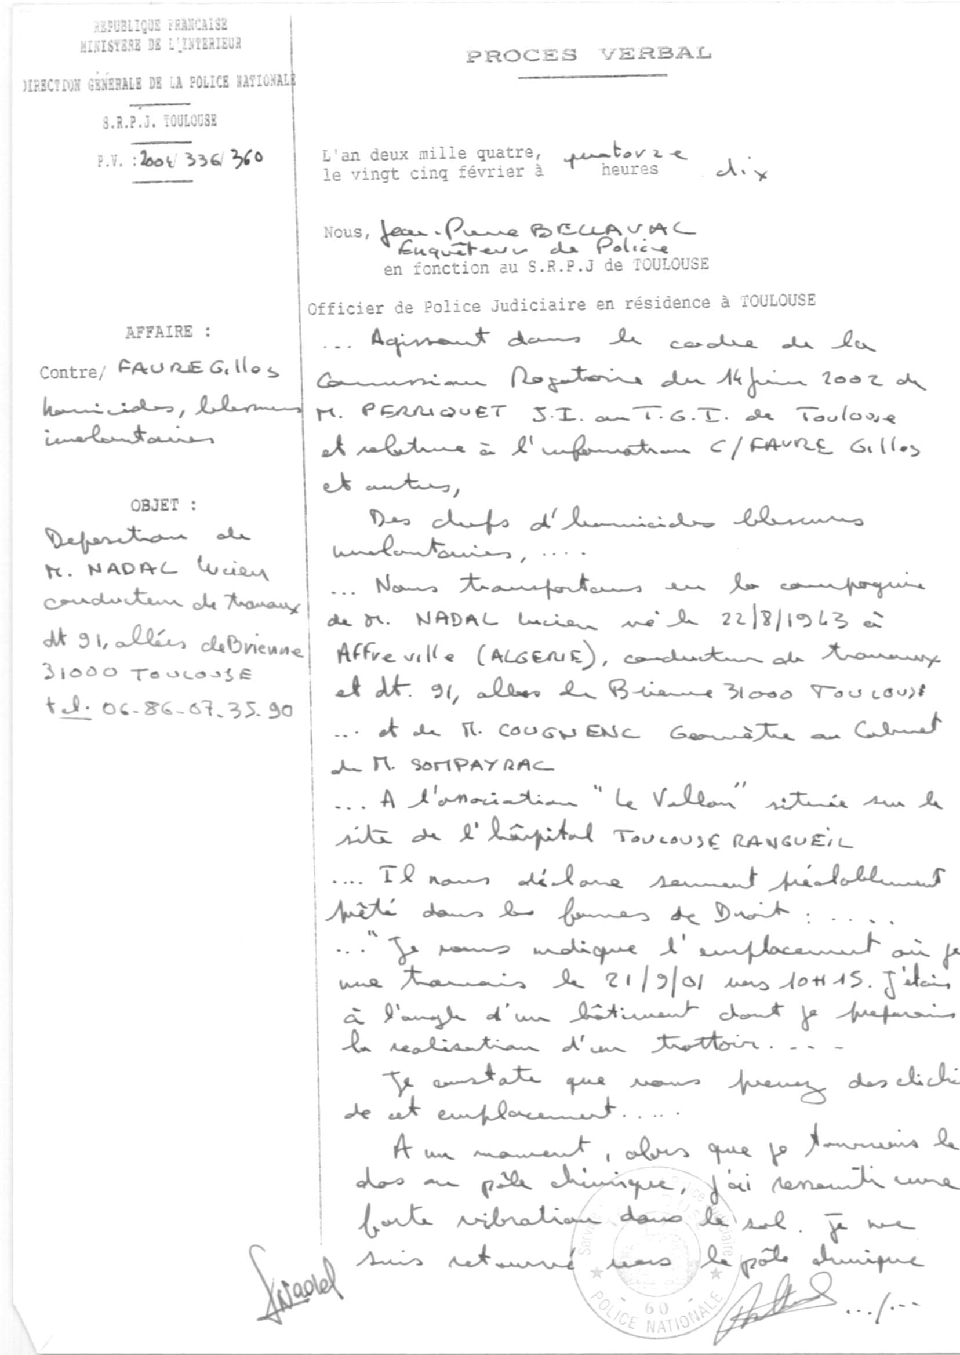 REPUBLIQUE FRANCAISE
MINISTERE DE L'INTERIEUR
DIRECTION GÉNÉRALE DE LA POLICE NATIONALE
S.R.P.J. TOULOUSE
P.V. : 2004/336/360
PROCES VERBAL
L'an deux mille quatre,
le vingt cinq février à quatorze heures dix
Nous, Jean-Pierre BELLAVAL
Enquêteur de Police
en fonction au S.R.P.J de TOULOUSE
Officier de Police Judiciaire en résidence à TOULOUSE
AFFAIRE :
Contre/ FAURE Gilles
homicides, blessures
involontaires
OBJET :
Deposition de
M. NADAL Lucien
conducteur de travaux
dt 91, allées de Brienne
31000 TOULOUSE
tel. 06-86-07.35.90
... Agissant dans le cadre de la
Commission Rogatoire du 14 juin 2002 de
M. PERRIQUET J.I. au T.G.I. de Toulouse
et relative à l'information C/ FAURE Gilles
et autres,
Des chefs d'homicides blessures
involontaires, ....
... Nous transportons en la compagnie
de M. NADAL Lucien né le 22/8/1943 à
Affreville (ALGERIE), conducteur de travaux
et dt. 91, allées de Brienne 31000 TOULOUSE
... et de M. COUGNENC Geomètre au Cabinet
de M. SOMPAYRAC
... A l'association "Le Vallon" située sur le
site de l'hôpital TOULOUSE RANGUEIL
.... Il nous déclare serment préalablement
prêté dans les formes de Droit : .....
..." Je vous indique l'emplacement où je
me trouvais le 21/9/01 vers 10H15. J'étais
à l'angle d'un bâtiment dont je preparais
la realisation d'un trottoir....
Je constate que vous prenez des clichés
de cet emplacement.....
A un moment, alors que je tournais le
dos au pôle chimique, j'ai ressenti une
forte vibration dans le sol. Je me
suis retourné vers le pôle chimique
Nadal
POLICE NATIONALE
- 60 -
.../...